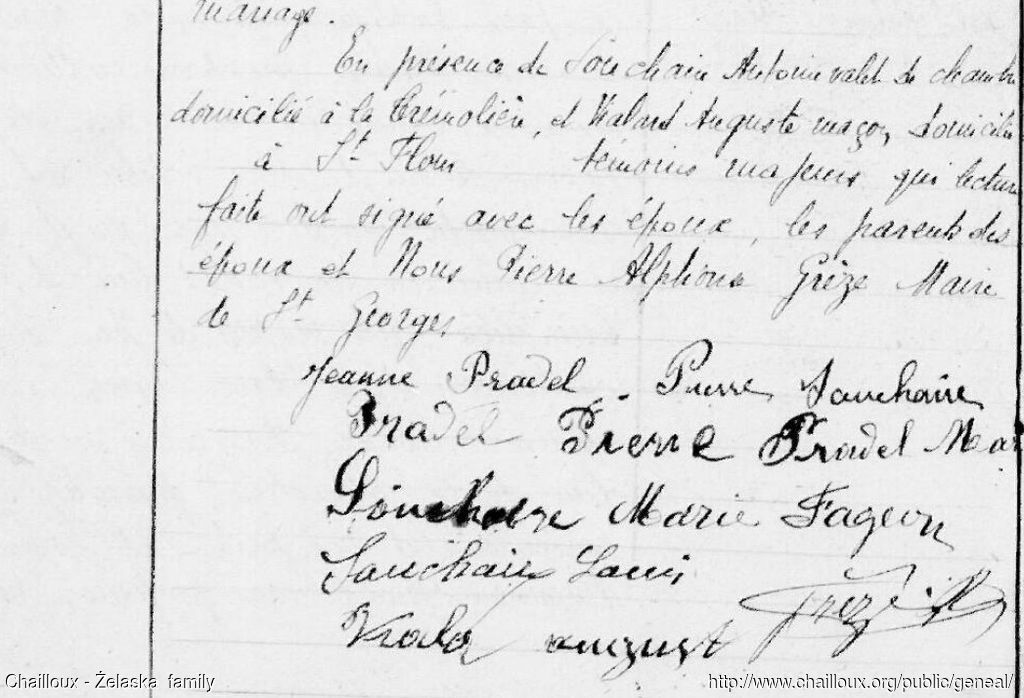 mariage.
En présence de Souchaire Antoine valet de chambre
domicilié à la Trémolière, et Vialard Auguste maçon, domicilié
à St Flour témoins majeurs qui lecture
faite ont signé avec les époux, les parents des
époux et Nous Pierre Alphonse Grèze Maire
de St Georges
Jeanne Pradel Pierre Souchaire
Pradel Pierre Pradel Mar
Souchaire Marie Fageon
Souchaire Louis
Grèze
august
Chailloux - Żelaska family
http://www.chailloux.org/public/geneal/